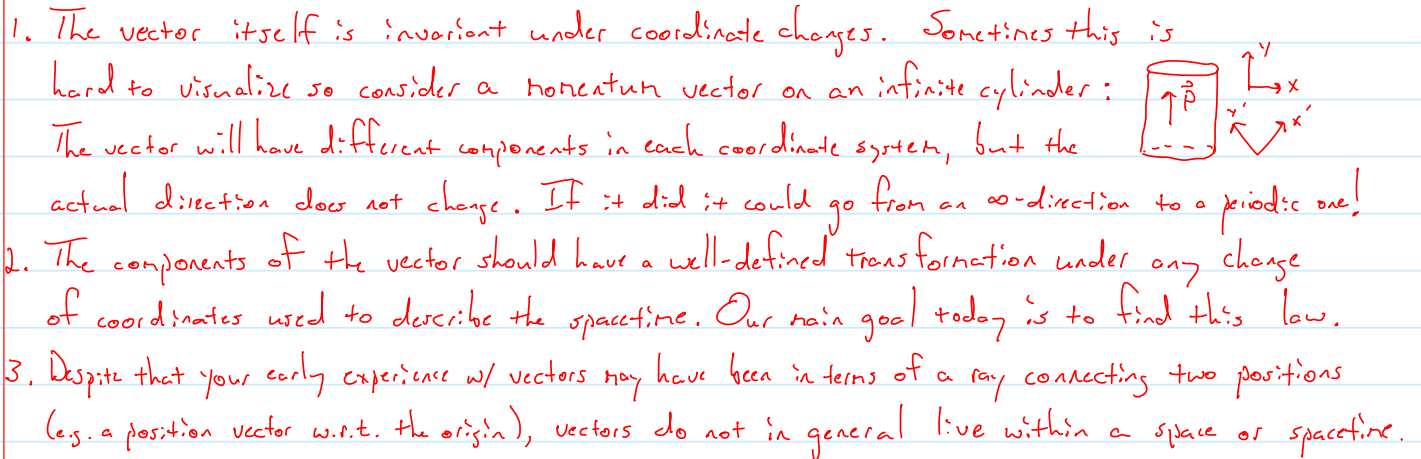 1. The vector itself is invariant under coordinate changes. Sometimes this is
hard to visualize so consider a momentum vector on an infinite cylinder:
The vector will have different components in each coordinate system, but the
actual direction does not change. If it did it could go from an ∞-direction to a periodic one!
p⃗
y
x
y'
x'
2. The components of the vector should have a well-defined transformation under any change
of coordinates used to describe the spacetime. Our main goal today is to find this law.
3. Despite that your early experience w/ vectors may have been in terms of a ray connecting two positions
(e.g. a position vector w.r.t. the origin), vectors do not in general live within a space or spacetime.